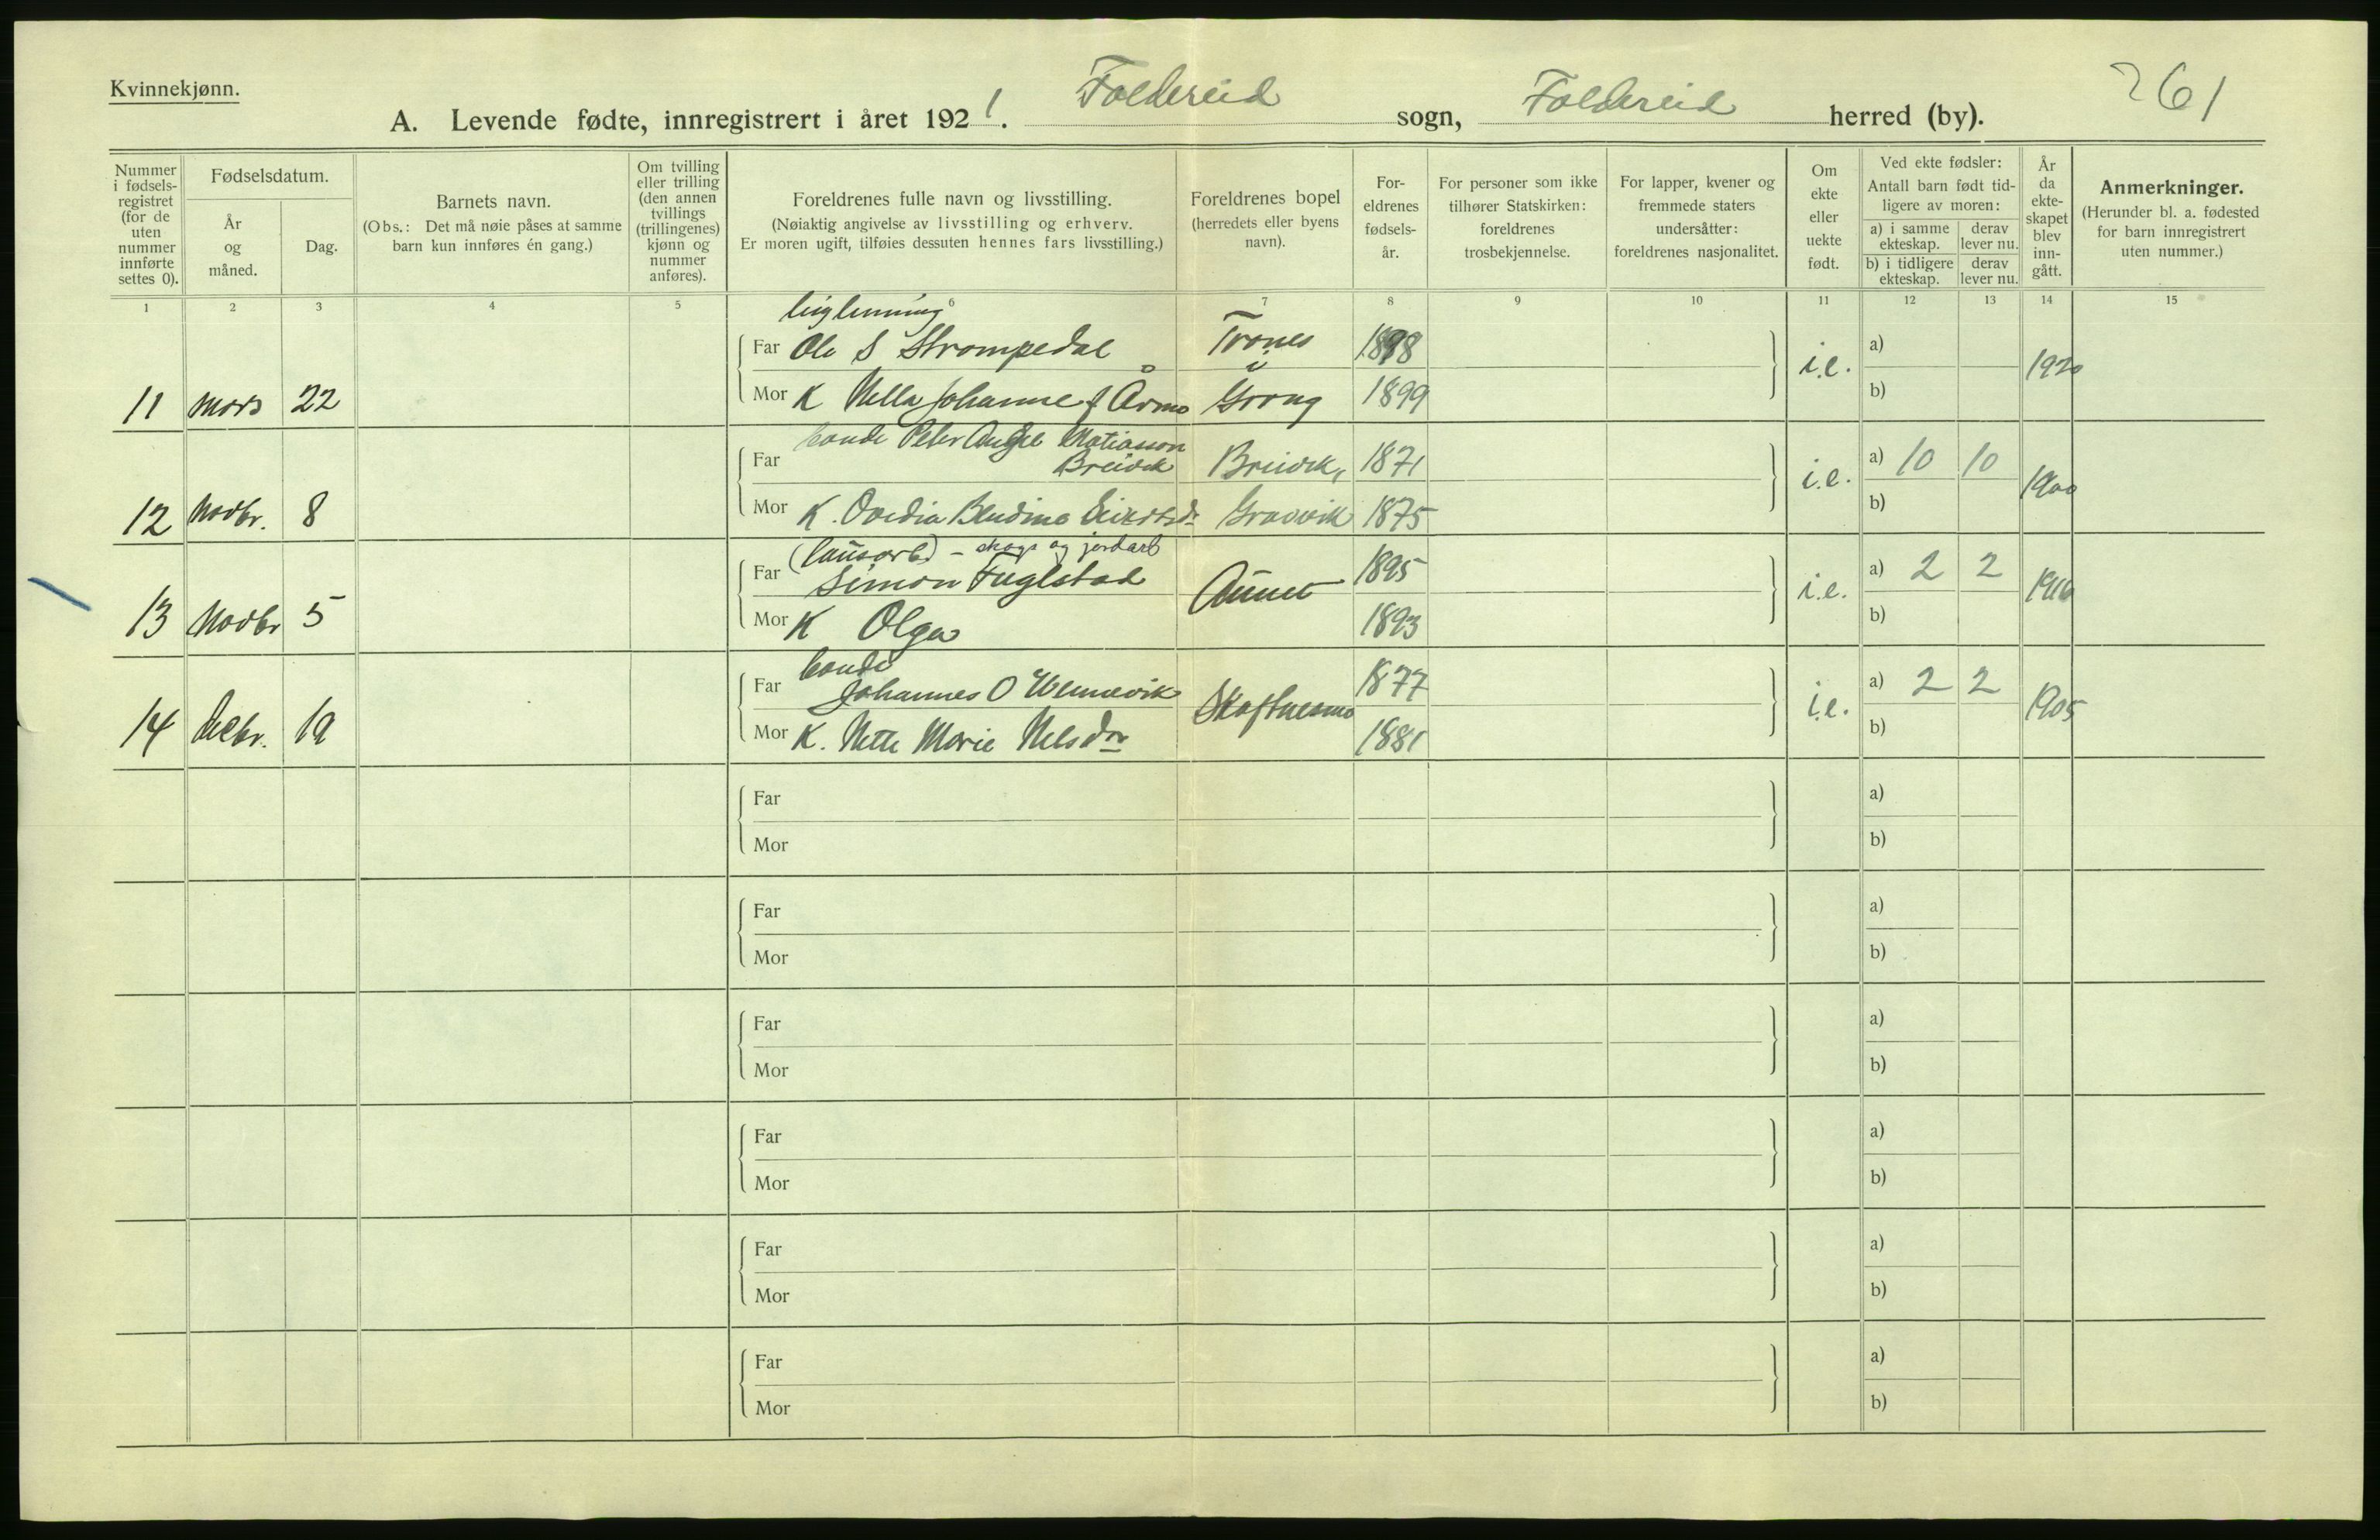 Kvinnekjønn.
261
A. Levende fødte, innregistrert i året 1921. Foldereid sogn, Foldereid herred (by).
Nummer i fødselsregistret (for de uten nummer innførte settes 0).
Fødselsdatum.
År og måned.
Dag.
Barnets navn.
(Obs.: Det må nøie påses at samme barn kun innføres én gang.)
Om tvilling eller trilling (den annen tvillings (trillingenes) kjønn og nummer anføres).
Foreldrenes fulle navn og livsstilling.
(Nøiaktig angivelse av livsstilling og erhverv.
Er moren ugift, tilføies dessuten hennes fars livsstilling.)
Foreldrenes bopel
(herredets eller byens navn).
Foreldrenes fødselsår.
For personer som ikke tilhører Statskirken: foreldrenes trosbekjennelse.
For lapper, kvener og fremmede staters undersåtter: foreldrenes nasjonalitet.
Om ekte eller uekte født.
Ved ekte fødsler:
Antall barn født tidligere av moren:
a) i samme ekteskap.
derav lever nu.
b) i tidligere ekteskap.
derav lever nu.
År da ekteskapet blev inngått.
Anmerkninger.
(Herunder bl. a. fødested for barn innregistrert uten nummer.)
1 2 3 4 5 6 7 8 9 10 11 12 13 14 15
Far Ole S Strompedal Trones 1898 a)
11 mars 22 i i.e. 1920
Mor K Nella Johanne f Årmo Grong 1899 b)
bonde Peter Angel Matiasson
Far Breivik Breivik, 1871 a) 10 10
12 Novbr. 8 i.e. 1900
Mor K. Ovedia Bendine Gravvik 1875 b)
(lausarb) - skogs og jordarb
Far Simon Fuglstad 1895 a) 2 2
13 Novbr 5 Aunet i.e. 1916
Mor K Olga 1893 b)
bonde
Far Johannes O 1877 a) 2 2
14 Decbr. 19 Skaftnesmo i.e. 1905
Mor K. Nette Marie Nelsdtr 1881 b)
Far a)
Mor b)
Far a)
Mor b)
Far a)
Mor b)
Far a)
Mor b)
Far a)
Mor b)
Far a)
Mor b)